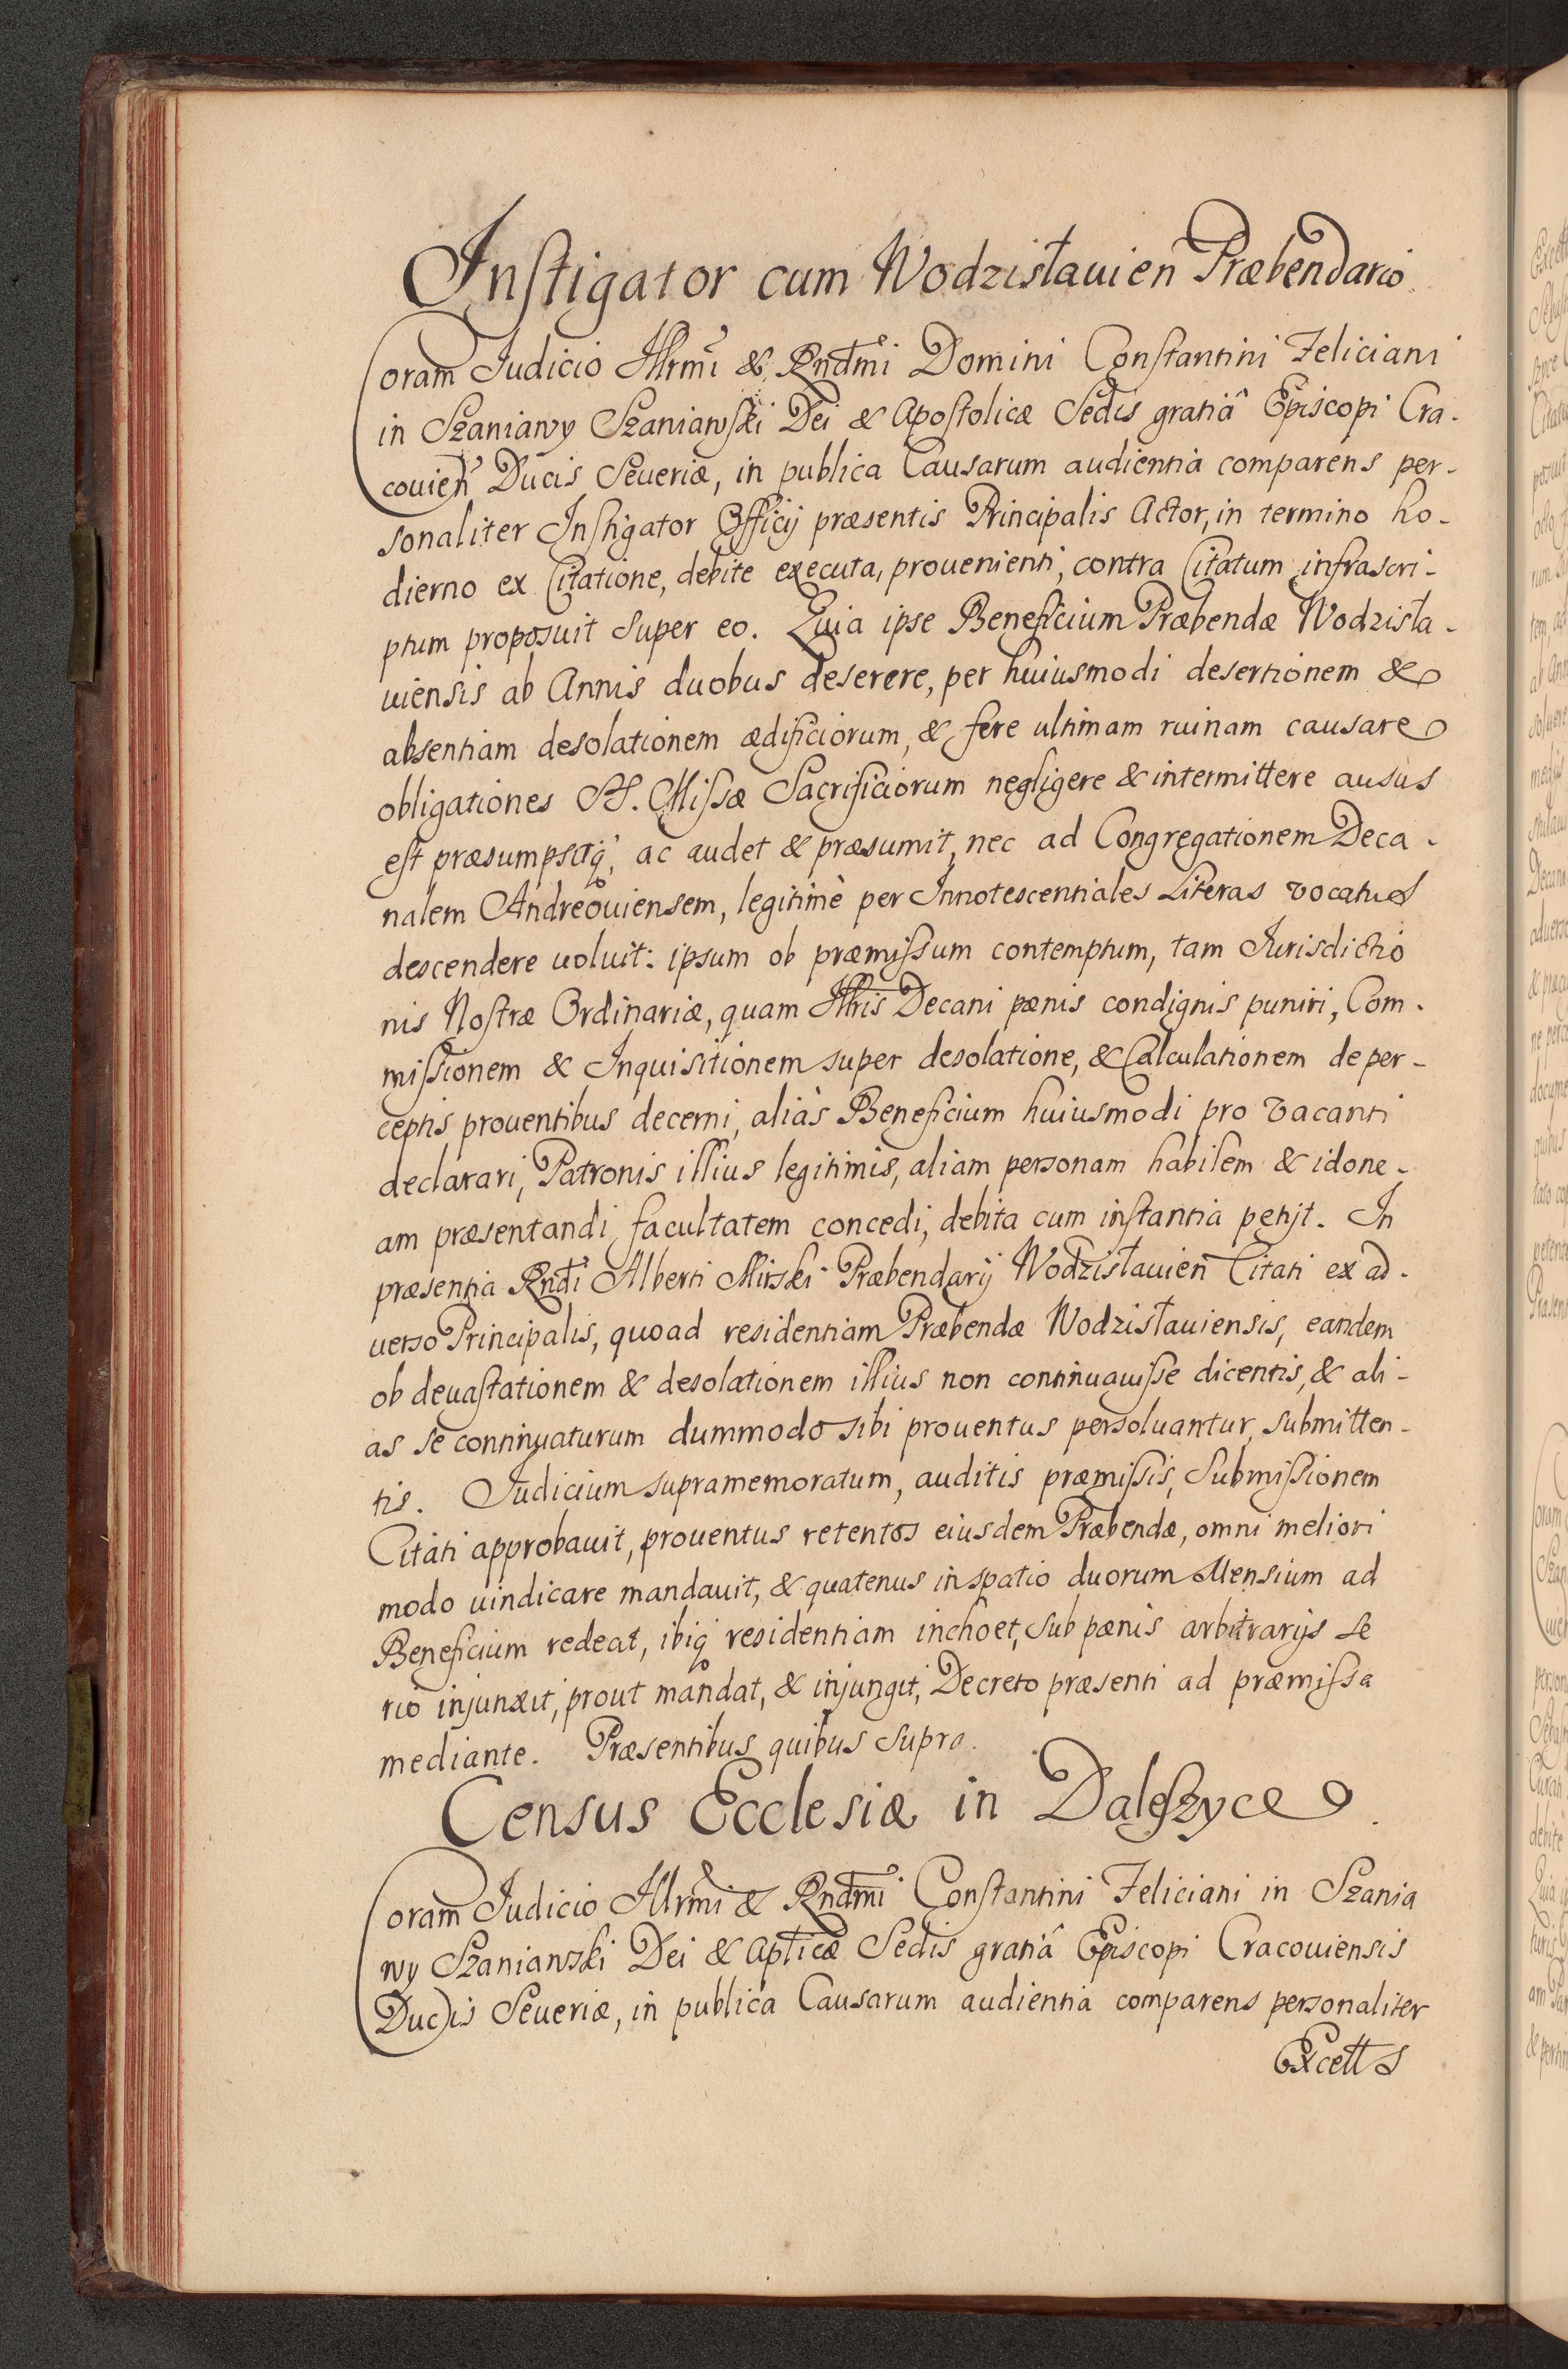 Instigator cum Wodzisłauien̄ Præbendario
Coram Judicio Illrm̃i & Rndm̃i Domini Constantini Feliciani
in Szaniawy Szaniawski Dei & Apostolicæ Sedis gratiâ Episcopi Cra-
couien̄ Ducis Seueriæ, in publica Causarum audientia comparens per-
sonaliter Instigator Officij præsentis Principalis Actor, in termino ho-
dierno ex Citatione, debite executa, prouenienti, contra Citatum infrascri-
ptum proposuit super eo. Quia ipse Beneficium Præbendæ Wodzisła-
uiensis ab Annis duobus deserere, per huiusmodi desertionem &
absentiam desolationem ædificiorum, & fere ultimam ruinam causare
obligationes SS. Missæ Sacrificiorum negligere & intermittere ausus
est præsumpsitq́, ac audet & præsumit, nec ad Congregationem Deca-
nalem Andreouiensem, legitimè per Innotescentiales Literas vocatus
descendere uoluit: ipsum ob præmissum contemptum, tam Jurisdictio
nis Nostræ Ordinariæ, quam Illris Decani pœnis condignis puniri, Com-
missionem & Inquisitionem super desolatione, & Calculationem de per-
ceptis prouentibus decerni, aliàs Beneficium huiusmodi pro vacanti
declarari, Patronis illius legitimis, aliam personam habilem & idone-
am præsentandi facultatem concedi, debita cum instantia petijt. In
præsentia Rndi Alberti Mirski Præbendarij Wodzisłauien̄ Citati ex ad-
uerso Principalis, quoad residentiam Præbendæ Wodzisłauiensis, eandem
ob deuastationem & desolationem illius non continuauisse dicentis, & ali-
as se continuaturum dummodo sibi prouentus persoluantur, submitten-
tis. Judicium supramemoratum, auditis præmissis, Submissionem
Citati approbauit, prouentus retentos eiusdem Præbendæ, omni meliori
modo uindicare mandauit, & quatenus in spatio duorum Mensium ad
Beneficium redeat, ibiq́ residentiam inchoet, sub pœnis arbitrarijs se
rio injunxit, prout mandat, & injungit, Decreto præsenti ad præmissa
mediante. Præsentibus quibus supra.
Census Ecclesiæ in Daleszyce.
Coram Judicio Illrm̃i & Rndm̃i Constantini Feliciani in Szania
wy Szaniawski Dei & Apticæ Sedis gratiâ Episcopi Cracouiensis
Ducis Seueriæ, in publica Causarum audientia comparens personaliter
Excell̃s